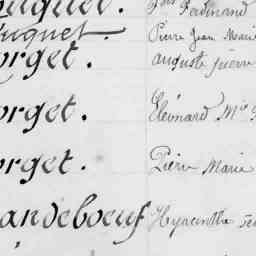 uguet. Ferdinand
uguet. Pierre Jean Marie
orget. auguste pierre
orget. Eléonard Mie
orget. Pierre Marie
andeboeuf Hyacinthe